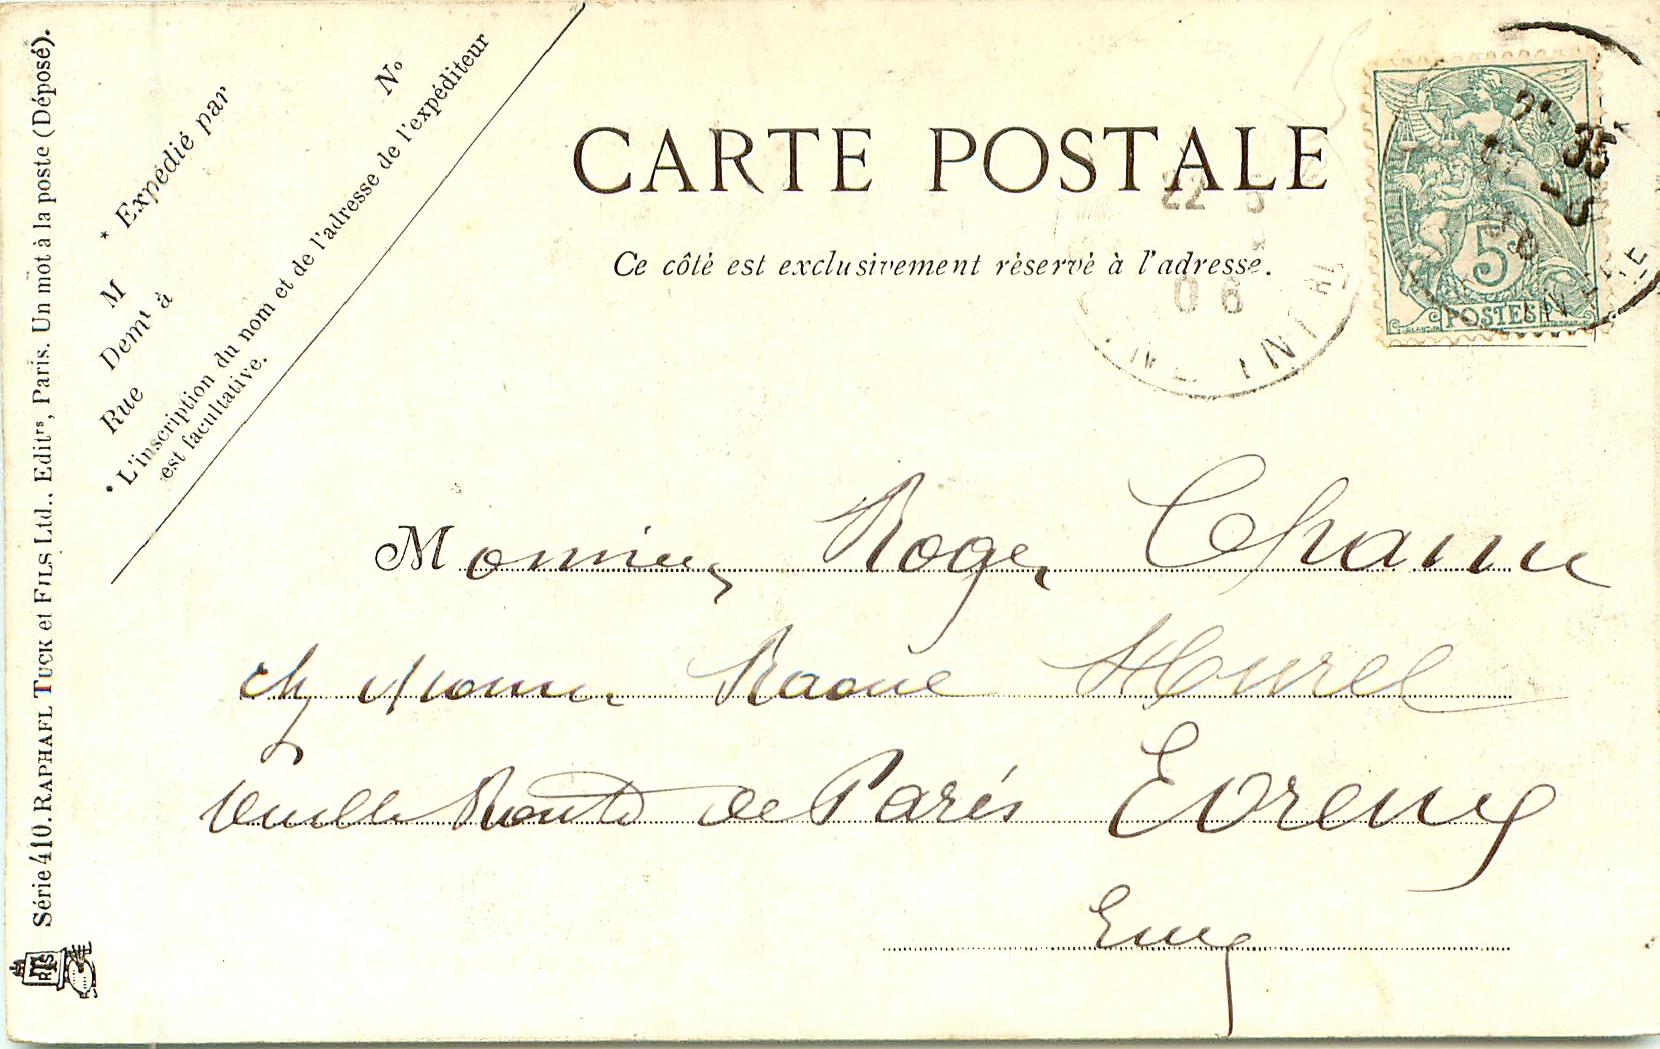 Série 410. RAPHAEL TUCK et FILS Ltd.. Editrs, Paris. Un mot à la poste (Déposé).
* Expédié par
M No
Demt à
Rue
* L'inscription du nom et de l'adresse de l'expéditeur
est facultative.
CARTE POSTALE
Ce côté est exclusivement réservé à l'adresse.
22 5
06
5
POSTES
Monsieur Roger
chez Monsieur Raoul Hurel
Vieille Route de Paris Evreux
Eure